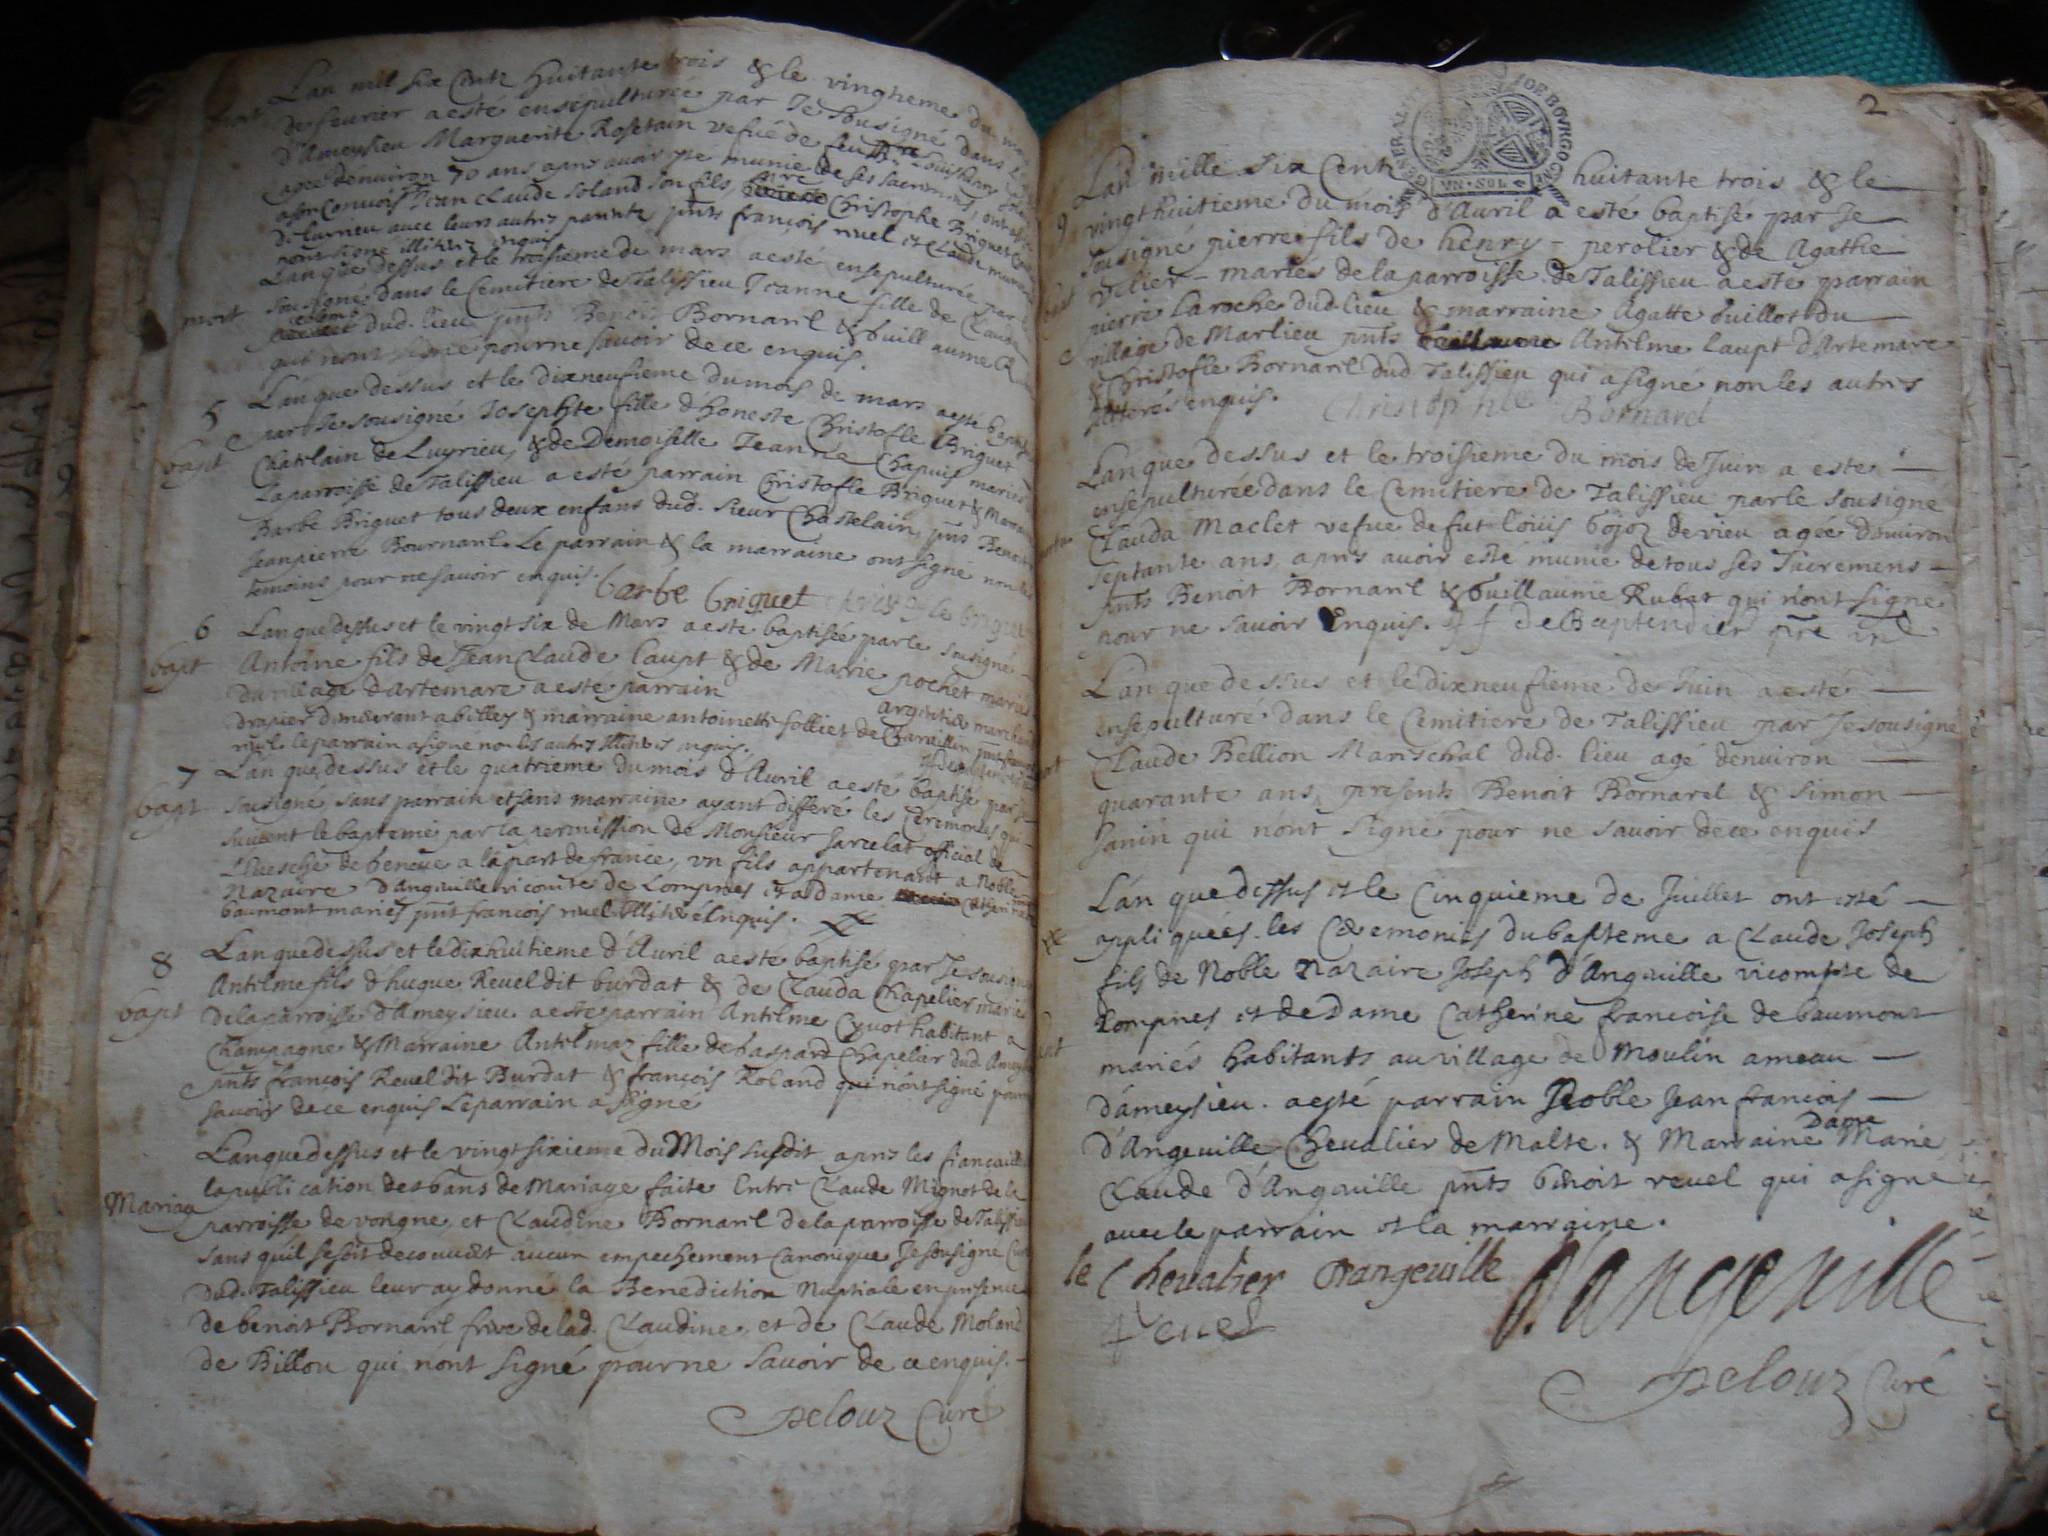 Lan mil six Centz huitante trois & le vingtieme du
de fevrier a esté ensepulturée par Je sousigné dans
d'Ameysieu Marguerite Rosetain vefue de feu
agee denuiron 70 ans apres auoir esté munie de ses sacremens, ont
a son Convoir Jean Claude Soland son fils, Christophe Briguet
de Luyrieu auec leurs autres parentz pnts françois revel et Claude
nont signé illiterez enquis
mort
Lan que dessus et le troisieme de mars a esté ensepulturée par
sousigné dans le Cemitiere de Talissieu Jeanne fille de Claude
dud. lieu pnts Benoit Bornarel & Guillaume
qui nont signé pour ne savoir de ce enquis.
mort
5
Lan que dessus et le dixneufieme du mois de mars a esté
par Je sousigné Josephte fille d'honeste Christofle Briguet
bapt
Chatelain de Luyrieu, & de Demoiselle Jeanne Chapuis mariés
la parroisse de Talissieu a esté parrain Christofle Briguet &
Barbe Briguet tous deux enfans dud. sieur Chastelain, pnts Benoit
Jeanpierre Bournarel. Le parrain & la marraine ont signé non les
temoins pour ne savoir enquis. barbe briguet
6
Lan que dessus et le vingt six de Mars a este baptisée par le sousigné
bapt
Antoine fils de Jean Claude Caupt & de Marie pochet mariés
du village d'Artemare a este parrain
drapier demeurant a billey & marraine antoinette folliet de
revel le parrain a signe non les autres illiteres enquis.
7
Lan que dessus et le quatrieme du mois d'Auril a esté baptisé par Je
bapt
sousigné sans parrain et sans marraine ayant differé les Ceremonies qui
suivent le bapteme par la permission de Monsieur Jarcelat official de
L'Evesche de Geneve a la part de france, vn fils appartenant a Noble
Nazaire d'Angeville vicomte de Lompnes et a dame
baumont mariés pnt francois revel illiteré Enquis.
8
Lan que dessus et le dixhuitieme d'Auril a esté baptisé par Je sousigné
Antelme fils d'hugue Revel dit burdat & de Clauda Chapelier mariés
bapt
de la parroisse d'Ameysieu. a esté parrain Antelme Cyvot habitant a
Champagne & Marraine Antelmaz fille de Gaspard Chapelier dud.
pnts françois Revel dit Burdat & françois Roland qui n'ont signé pour
savoir de ce enquis Le parrain a signé
Lan que dessus et le vingt sixieme du Mois susdit apres les fiancailles
la publication des bans de Mariage faite Entre Claude Mignot de la
Mariage
parroisse de vongne, et Claudine Bornarel de la parroisse de Talissieu
sans quil se soit decouvert aucun empechement Canonique Je sousigne Curé
dud. Talissieu leur ay donné la Benediction Nuptiale en presence
de benoit Bornarel frere de lad. Claudine, et de Claude Moland
de Billou qui n'ont signé pour ne savoir de ce enquis.
Delouz Curé
GENERAL DE BOVRGOGNE
VN·SOL
2
9
Lan mille Six Centz huitante trois & le
vingthuitieme du mois d'Auril a esté baptisé par Je
sousigné pierre fils de henry perolier & de Agathe
bapt
velier mariés de la parroisse de Talissieu a esté parrain
pierre Laroche dud. lieu & marraine Agatte Guillot du
village de Marlieu pnts Antelme Caupt d'Artemare
& Christofle Bornarel dud. Talissieu qui a signé non les autres
illiterés enquis. Christophle Bornarel
Lan que dessus et le troisieme du mois de Juin a este
ensepulturée dans le Cemitiere de Talissieu par le sousigne
Clauda Maclet vefue de fut Loüis bojoz de vieu agée d'environ
septante ans, apres avoir esté munie de tous ses Sacremens
pnts Benoit Bornarel & Guillaume Rubat qui n'ont signé
pour ne savoir Enquis.
Lan que dessus et le dixneufieme de Juin a esté
ensepulturé dans le Cemitiere de Talissieu par Je sousigné
Claude Bellion Mareschal dud. lieu agé denuiron
quarante ans, presents Benoit Bornarel & Simon
Janin qui n'ont signé pour ne savoir de ce enquis
Lan que dessus et le Cinquieme de Juillet ont esté
appliquées les Ceremonies du bapteme a Claude Joseph
fils de Noble Nazaire Joseph d'Angeville vicompte de
Lompnes et de Dame Catherine francoise de baumont
mariés habitants au village de Moulin ameau
d'ameysieu. a esté parrain Noble Jean francois
d'Angeville Chevalier de Malte. & Marraine Dame Marie
Claude d'Angeville pnts benoit revel qui a signe
avec le parrain et la marraine.
le Chevalier Dangeville D'angeville
revel
Delouz Curé